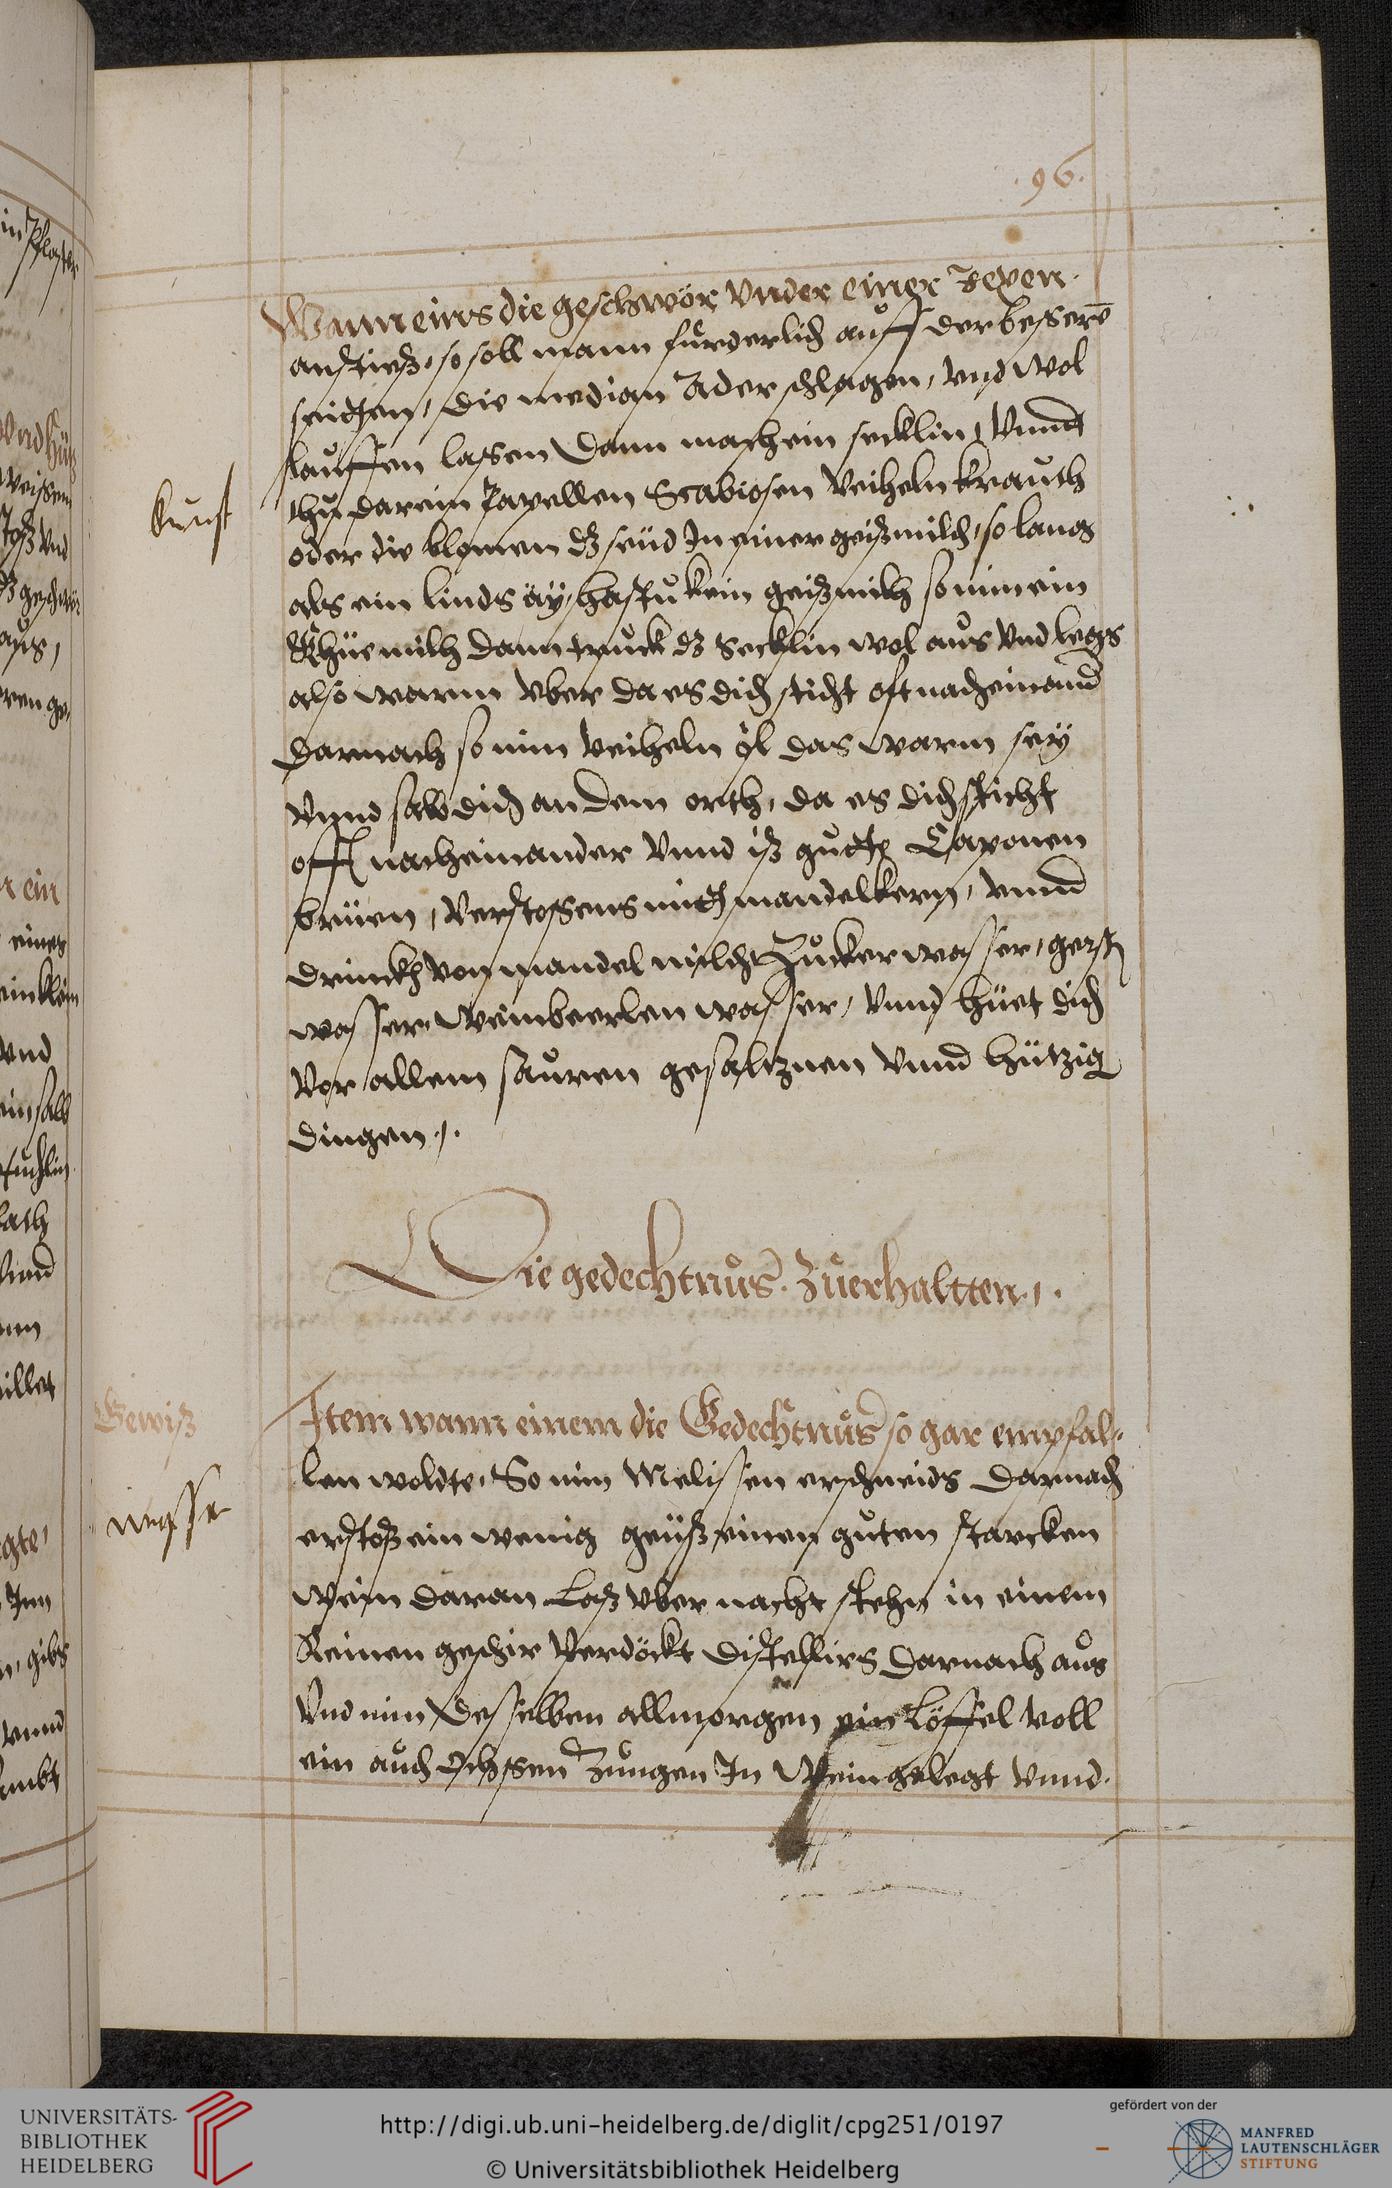 .96.
Wann eins die geschwör Vnder einer Jexen
anstieß, so soll mann fürderlich auff der besserē
seitten, die median Ader schlagen, vnd wol
lauffen lassen Dann mach ein secklin, Vnndt
thu darein Papellen Scabiosen Veiheln krauth
oder die blomen dz seüd In einer geißmilch, so lang
als ein linds äÿ, hastu kein geißmilch so nim ein
Khüemilch dann truck dz Secklin wol aus Vnd legs
also warm vber da es dich sticht oft nacheinand
Darnach so nim veiheln öl das warm seÿ
Vnnd salb dich an dem orth, da es dich sticht
offt nacheinander Vnnd iß gutte Caponen
brüen, Verstossens mit mandelkern, vnnd
drinckh von mandel milch Zucker wasser, gerst
wasser Weinbeerlen wasser, Vnnd hüet dich
Vor allem sauren gesaltznen Vnnd hützig
dingen.
Kunst
Die gedechtnus. Zuerhaltten.
Gewiß
Item wann einem die Gedechtnus so gar empfal-
len woldte, So nim Melissen erschneids Darnach
erstoß ein wenig geüß einen guten starcken
wein daran Laß vber nacht stehn in einem
Reinen geschir Verdöckt distellirs Darnach aus
Vnd nim desselben allmorgen ein Löffel voll
ein auch Ochssen Zungen In Wein gelegt vnnd
UNIVERSITÄTS-
BIBLIOTHEK
HEIDELBERG
http://digi.ub.uni-heidelberg.de/diglit/cpg251/0197
© Universitätsbibliothek Heidelberg
gefördert von der
MANFRED
LAUTENSCHLÄGER
STIFTUNG